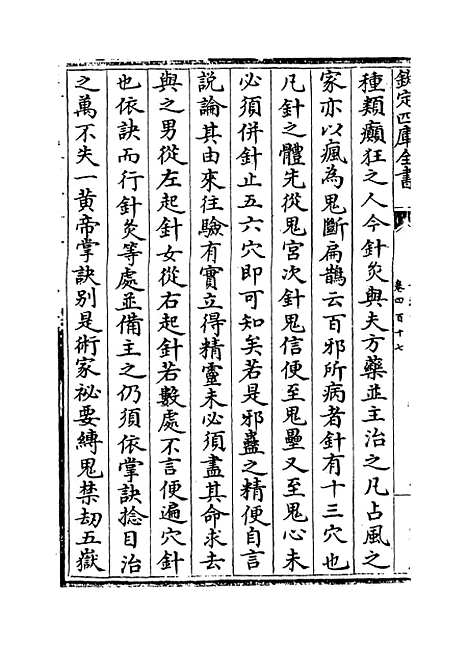 欽定四庫全書
卷四百十七
種類癲狂之人今針灸與夫方藥並主治之凡占風之
家亦以瘋為鬼斷扁鵲云百邪所病者針有十三穴也
凡針之體先從鬼宮次針鬼信便至鬼壘又至鬼心未
必須併針止五六穴即可知矣若是邪蠱之精便自言
說論其由來往驗有實立得精靈未必須盡其命求去
與之男從左起針女從右起針若數處不言便遍穴針
也依訣而行針灸等處並備主之仍須依掌訣捻目治
之萬不失一黄帝掌訣别是術家祕要縛鬼禁劾五嶽